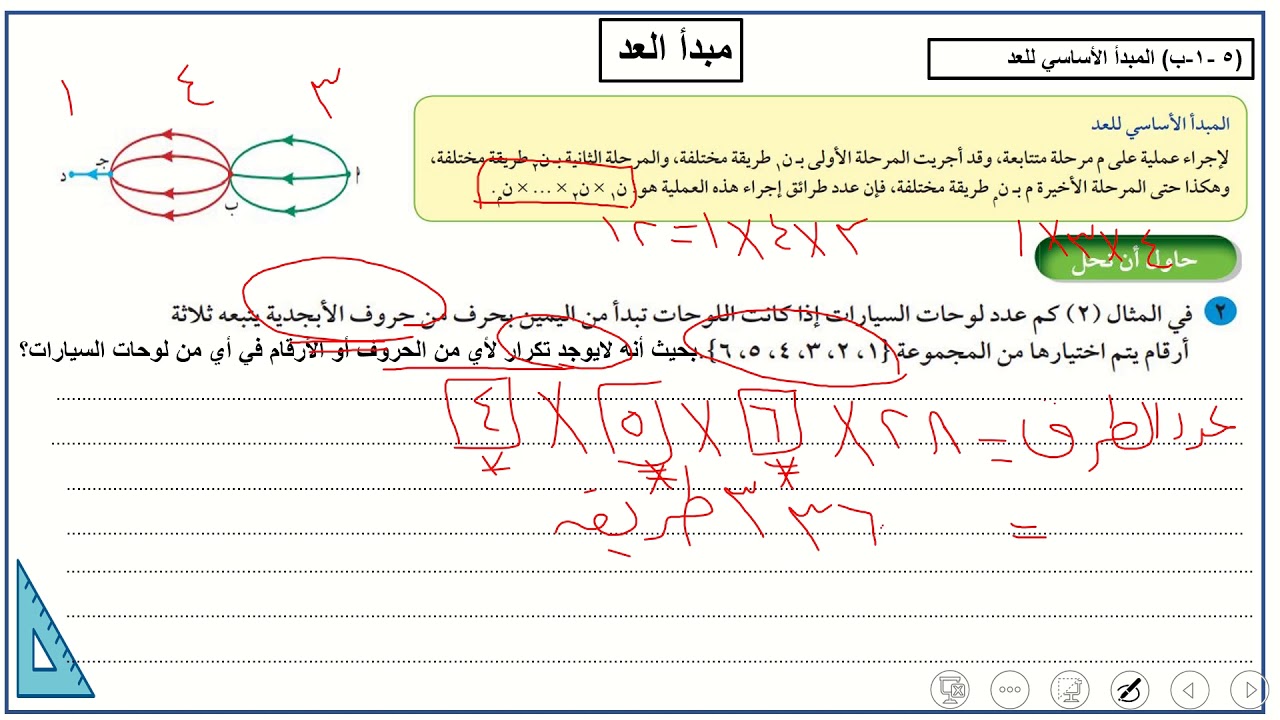 (٥ -١-ب) المبدأ الأساسي للعد
مبدأ العد
٣ ٤ ١
المبدأ الأساسي للعد
لإجراء عملية على م مرحلة متتابعة، وقد أجريت المرحلة الأولى بـ ن١ طريقة مختلفة، والمرحلة الثانية بـ ن٢ طريقة مختلفة،
وهكذا حتى المرحلة الأخيرة م بـ نم طريقة مختلفة، فإن عدد طرائق إجراء هذه العملية هو: ن١ × ن٢ × ... × نم.
أ
ب
جـ
د
٤ × ٣ × ١
٣ × ٤ × ١ = ١٢
حاول أن تحل
٢ في المثال (٢) كم عدد لوحات السيارات إذا كانت اللوحات تبدأ من اليمين بحرف من حروف الأبجدية يتبعه ثلاثة
أرقام يتم اختيارها من المجموعة {١، ٢، ٣، ٤، ٥، ٦}. بحيث أنه لايوجد تكرار لأي من الحروف أو الأرقام في أي من لوحات السيارات؟
عدد الطرق = ٢٨ × ٦ × ٥ × ٤
= ٣٣٦٠ طريقة